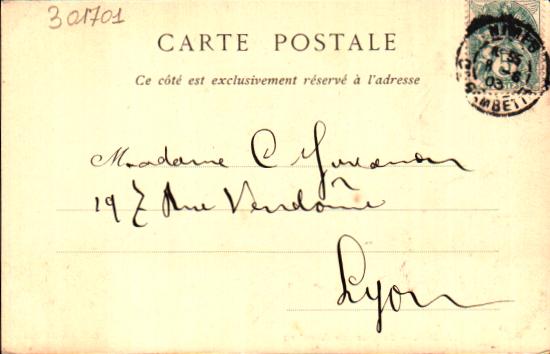 301701
CARTE POSTALE
NIMES
Ce côté est exclusivement réservé à l'adresse
Madame C
197 Rue Vendôme
Lyon